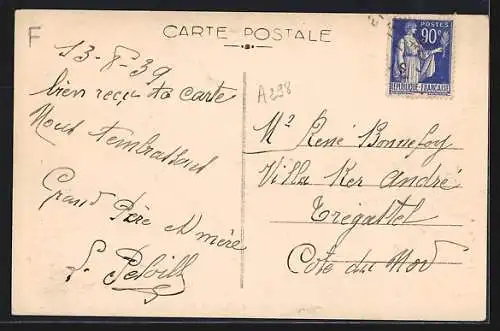 F
CARTE POSTALE
A298
POSTES
90c
RÉPUBLIQUE FRANÇAISE
13-8-39
bien reçu ta carte
Nous t'embrassent
Grand Père et mère
Mr René Bonnefoy
Villa Ker André
Trégastel
Cote du Nord